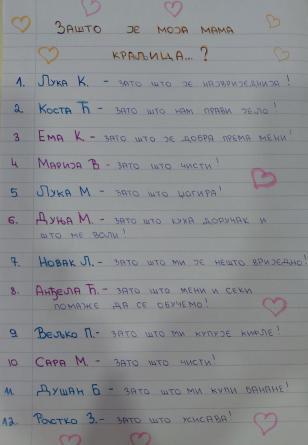 Зашто је моја мама
краљица...?
1. Лука К. - зато што је највриједнија!
2. Коста Ћ - зато што нам прави јело!
3 Ема К - зато што је добра према мени!
4 Марија В - зато што чисти!
5 Лука М - зато што џогира!
6. Дуња М. - зато што куха доручак и
што ме воли!
7. Новак Л. - зато што ми је нешто вриједно!
8. Анђела Ћ. - зато што мени и секи
помаже да се обучемо!
9 Вељко П. - зато што ми купује кифле!
10 Сара М. - зато што чисти!
11 Душан Б - зато што ми купи банане!
12. Растко З. - зато што усисава!